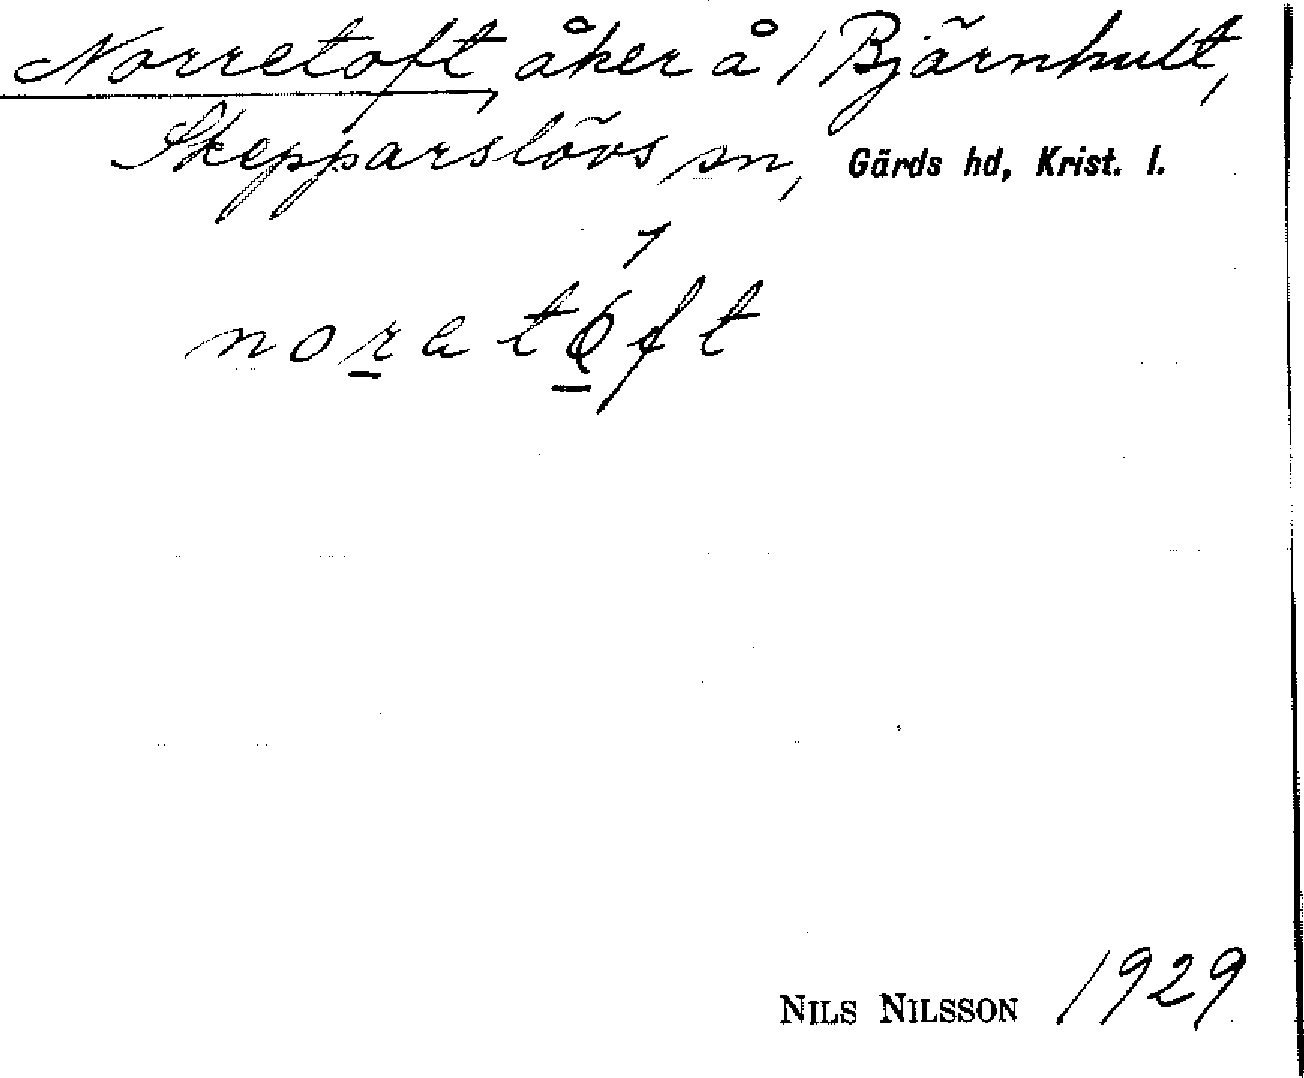 Norretoft, åker å 1 Bjärnhult,
Skepparslövs sn, Gärds hd, Krist. l.
noratoft
NILS NILSSON 1929